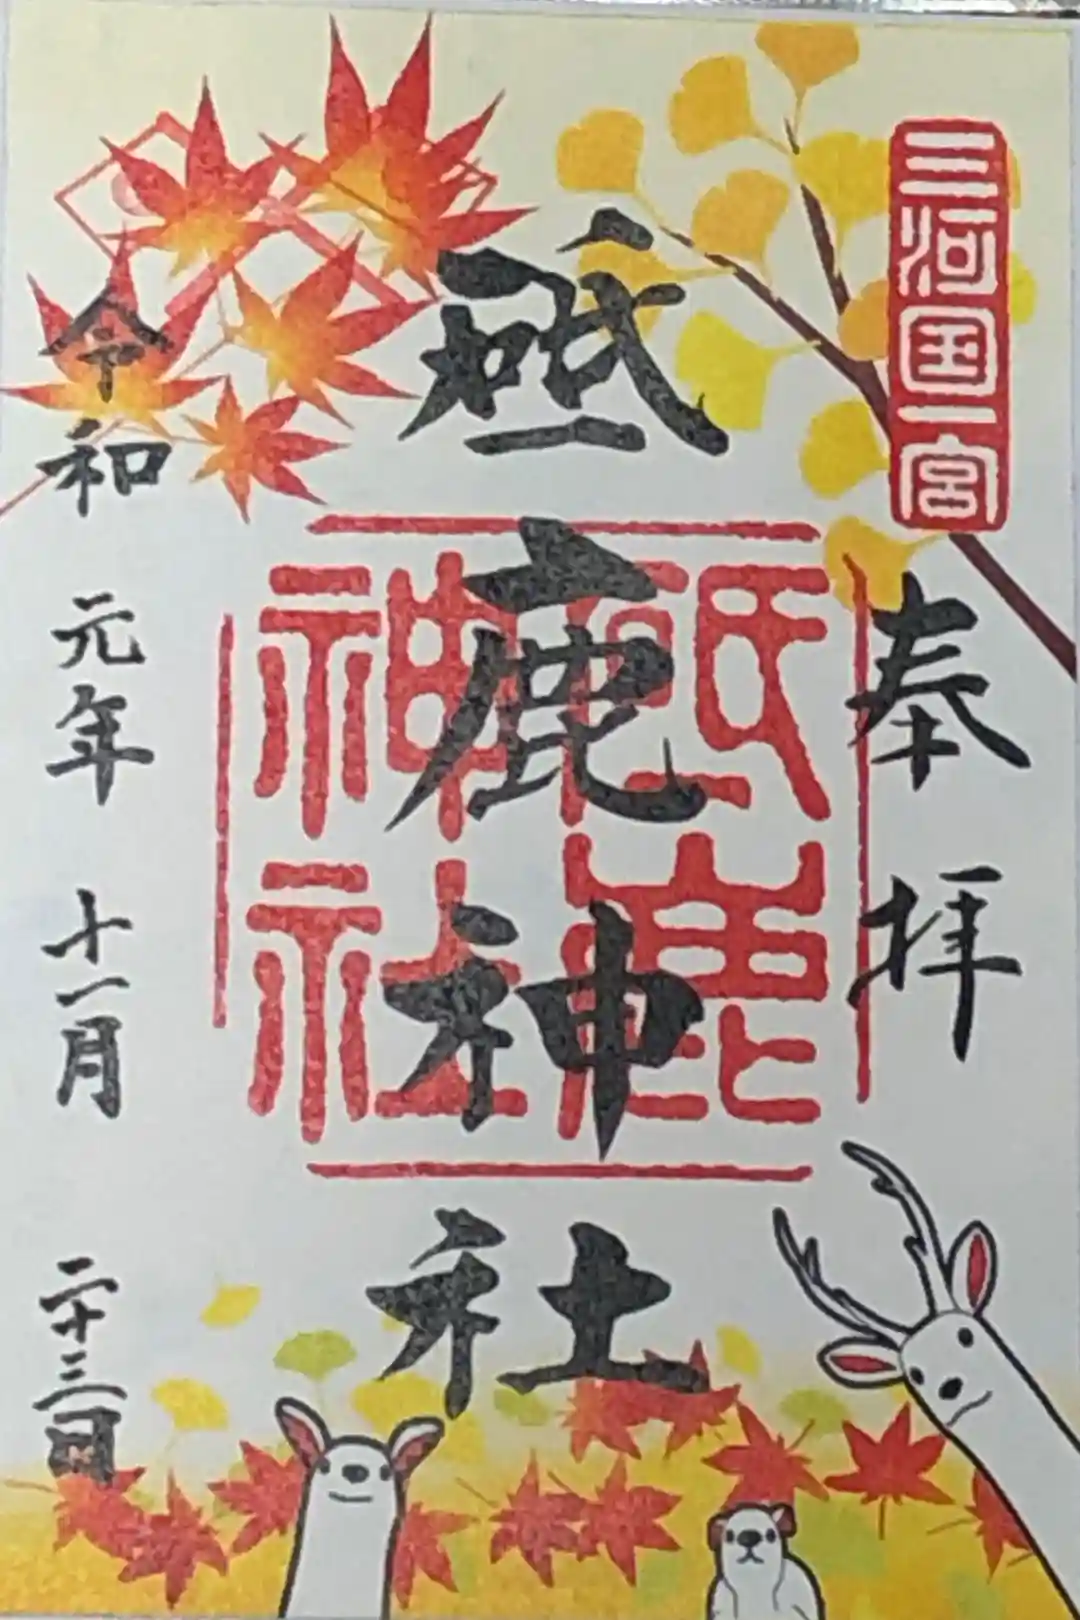 三河国一宮
奉拝
砥鹿神社
砥鹿神社
令和元年十一月二十三日